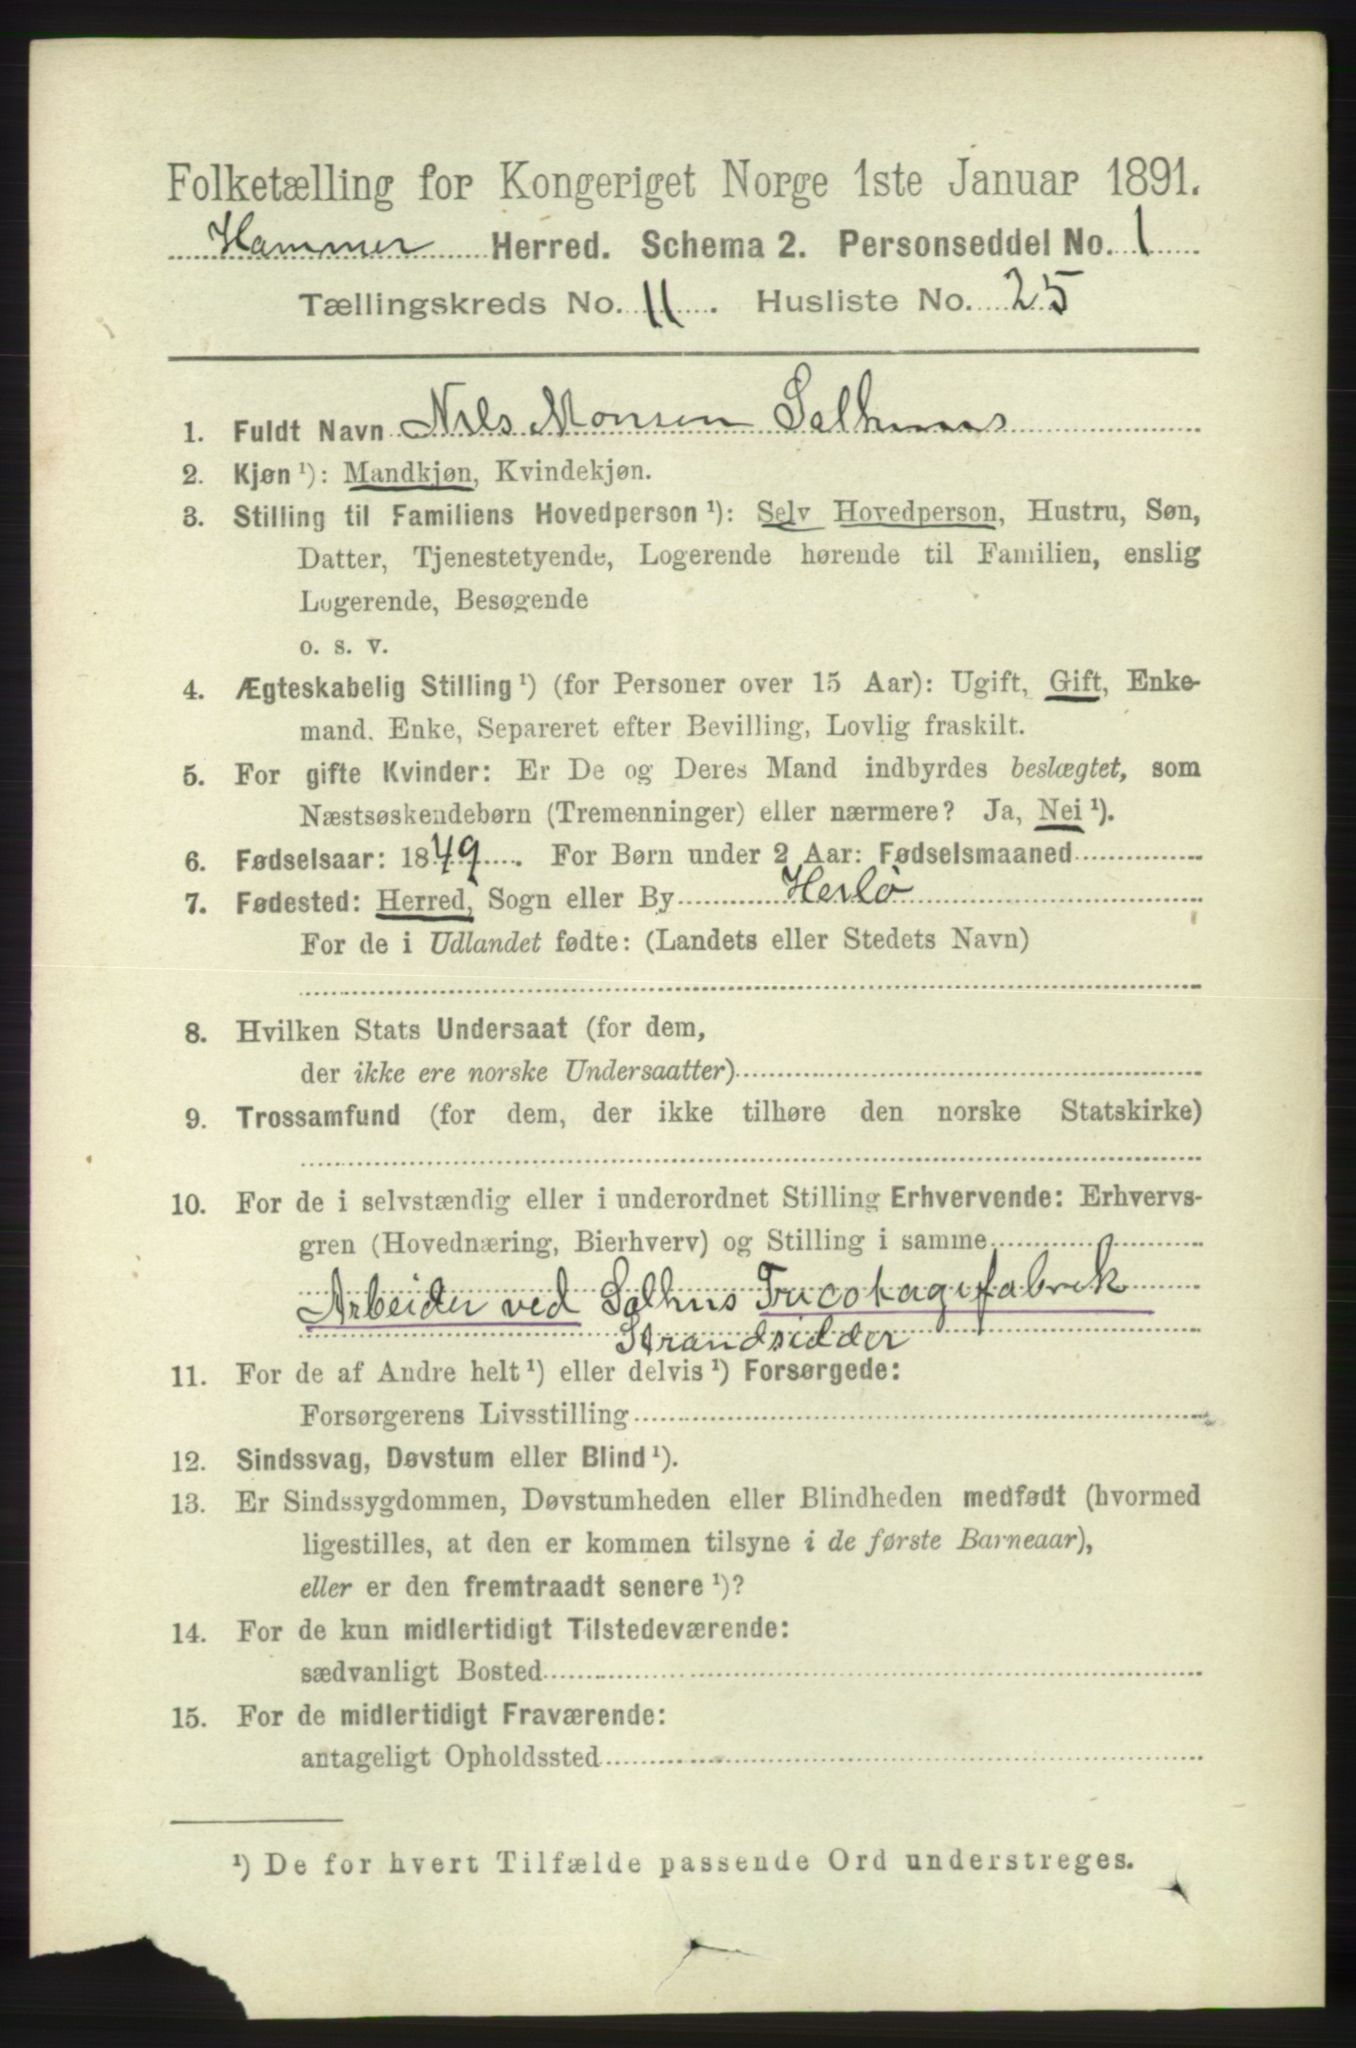 Folketælling for Kongeriget Norge 1ste Januar 1891.
Hammer Herred. Schema 2. Personseddel No. 1
Tællingskreds No. 11. Husliste No. 25
1. Fuldt Navn Nils Monsen Salhuus
2. Kjøn ¹): Mandkjøn, Kvindekjøn.
3. Stilling til Familiens Hovedperson ¹): Selv Hovedperson, Hustru, Søn,
Datter, Tjenestetyende, Logerende hørende til Familien, enslig
Logerende, Besøgende
o. s. v.
4. Ægteskabelig Stilling ¹) (for Personer over 15 Aar): Ugift, Gift, Enke-
mand, Enke, Separeret efter Bevilling, Lovlig fraskilt.
5. For gifte Kvinder: Er De og Deres Mand indbyrdes beslægtet, som
Næstsøskendebørn (Tremenninger) eller nærmere? Ja, Nei ¹).
6. Fødselsaar: 1849. For Børn under 2 Aar: Fødselsmaaned
7. Fødested: Herred, Sogn eller By Herlö
For de i Udlandet fødte: (Landets eller Stedets Navn)
8. Hvilken Stats Undersaat (for dem,
der ikke ere norske Undersaatter)
9. Trossamfund (for dem, der ikke tilhøre den norske Statskirke)
10. For de i selvstændig eller i underordnet Stilling Erhvervende: Erhvervs-
gren (Hovednæring, Bierhverv) og Stilling i samme
Arbeider ved Salhus Tricotagefabrik
Strandsidder
11. For de af Andre helt ¹) eller delvis ¹) Forsørgede:
Forsørgerens Livsstilling
12. Sindssvag, Døvstum eller Blind ¹).
13. Er Sindssygdommen, Døvstumheden eller Blindheden medfødt (hvormed
ligestilles, at den er kommen tilsyne i de første Barneaar),
eller er den fremtraadt senere ¹)?
14. For de kun midlertidigt Tilstedeværende:
sædvanligt Bosted
15. For de midlertidigt Fraværende:
antageligt Opholdssted
¹) De for hvert Tilfælde passende Ord understreges.